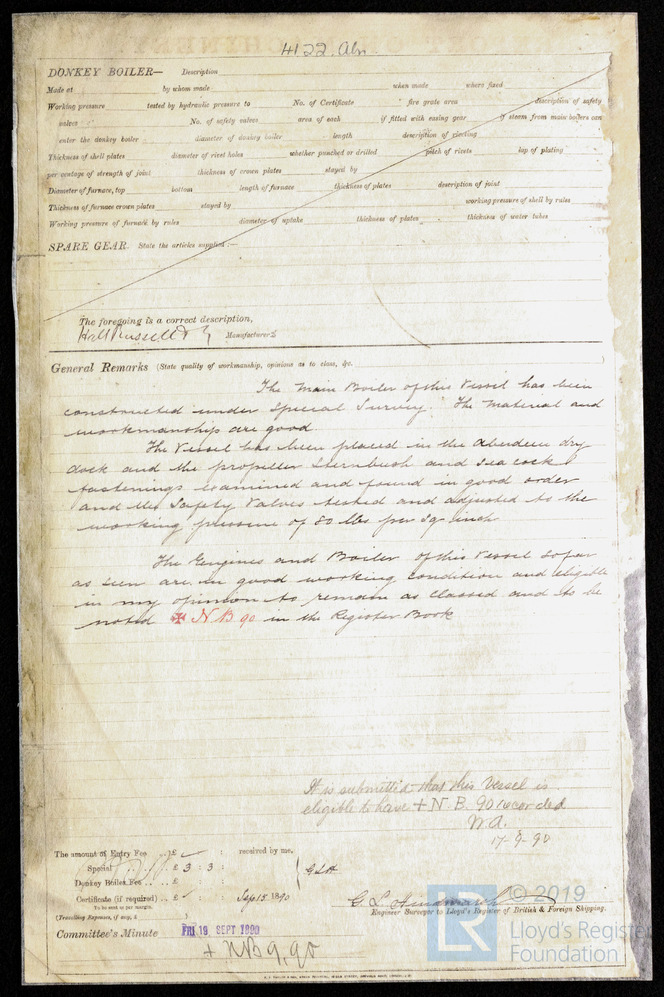 4122 Abn
DONKEY BOILER— Description
Made at by whom made when made where fixed
Working pressure tested by hydraulic pressure to No. of Certificate fire grate area description of safety
valves No. of safety valves area of each if fitted with easing gear if steam from main boilers can
enter the donkey boiler diameter of donkey boiler length description of riveting
Thickness of shell plates diameter of rivet holes whether punched or drilled pitch of rivets lap of plating
per centage of strength of joint thickness of crown plates stayed by
Diameter of furnace, top bottom length of furnace thickness of plates description of joint
Thickness of furnace crown plates stayed by working pressure of shell by rules
Working pressure of furnace by rules diameter of uptake thickness of plates thickness of water tubes
SPARE GEAR. State the articles supplied:—
The foregoing is a correct description,
Hall Russell & Co Manufacturers
General Remarks (State quality of workmanship, opinions as to class, &c.
The Main Boiler of this Vessel has been
constructed under Special Survey. The Material and
workmanship are good
The Vessel has been placed in the Aberdeen dry
dock and the propeller Sternbush and Sea cock
fastenings examined and found in good order
and the Safety Valves tested and adjusted to the
working pressure of 80 lbs per sq inch
The Engines and Boiler of this Vessel so far
as seen are in good working condition and eligible
in my opinion to remain as classed and to be
noted ✠ N B 90 in the Register Book
It is submitted that this Vessel is
eligible to have + N. B. 90 recorded
W.A.
17-9-90
The amount of Entry Fee .. £ : : received by me,
Special .. £ 3 : 3 :
Donkey Boiler Fee .. £ : :
Certificate (if required) .. £ : : Sep 15 1890
To be sent as per margin.
(Travelling Expenses, if any, £ )
G. L. Hindmarsh
Engineer Surveyor to Lloyd's Register of British & Foreign Shipping.
Committee's Minute FRI. 19 SEPT 1890
+ NB 9,90
LR © 2019
Lloyd's Register
Foundation